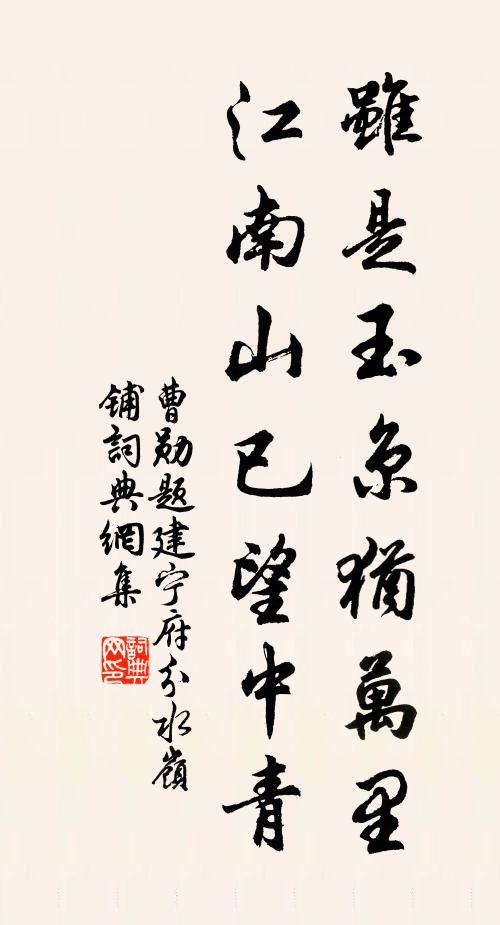 雖是玉京猶萬里
江南山已望中青
曹勛題建宁府分水嶺
鋪詞典網集
詞典
网印